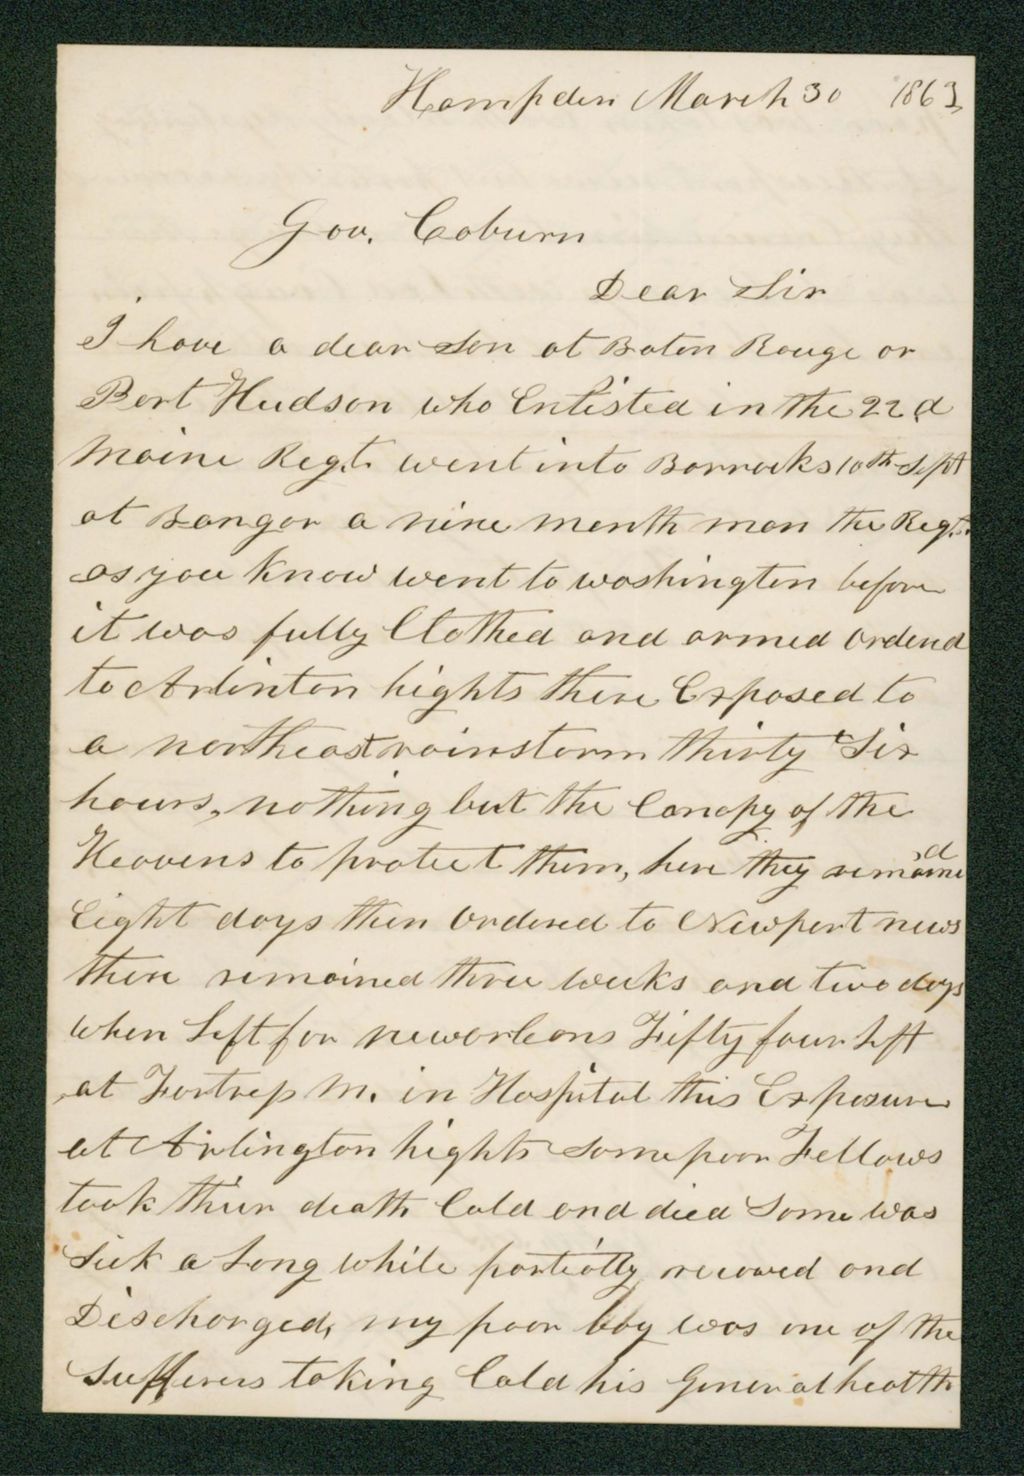 Hampden March 30 1863
Gov. Coburn
Dear Sir
I have a dear son at Baton Rouge or
Port Hudson who Enlisted in the 22d
Maine Regt. went into Barracks 10th Sept
at Bangor a nine month man the Regt.
as you know went to washington before
it was fully Clothed and armed Ordered
to Arlinton hights there Exposed to
a northeast rainstorm thirty Six
hours, nothing but the Canopy of the
Heavens to protect them, here they remained
Eight days then Ordered to Newport news
there remained three weeks and two days
when Left for neworleans Fifty four Left
at Fortress M. in Hospital this Exposure
at Arlington hights some poor Fellows
took their death Cold and died Some was
Sick a Long while partially recoved and
Discharged, my poor boy was one of the
Sufferers taking Cold his General health